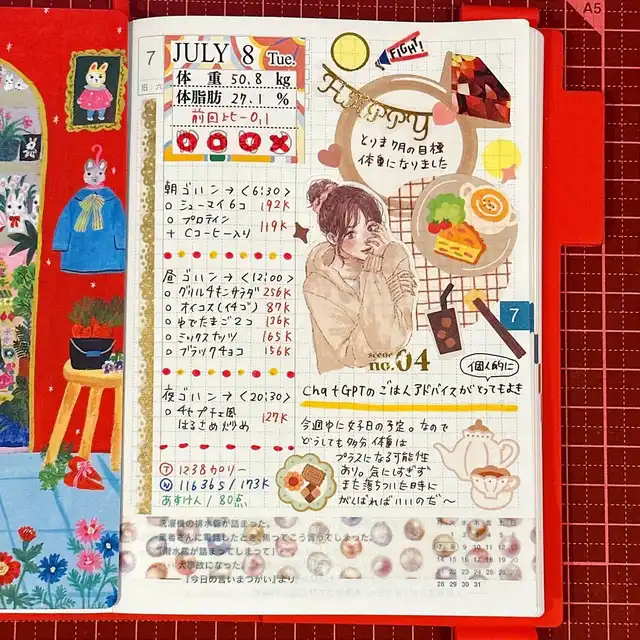 7
JULY 8 Tue.
体重 50.8 kg
体脂肪 27.1 %
前回比-0.1
朝ゴハン→<6:30>
シューマイ6コ 192K
プロテイン
+ Cコーヒー入り 119K
昼ゴハン→<12:00>
グリルチキンサラダ 256K
オイコス(イチゴ) 87K
ゆでたまご2コ 136K
ミックスナッツ 165K
ブラックチョコ 156K
夜ゴハン→<20:30>
チャプチェ風
はるさめ炒め 127K
T 1238カロリー
N 11636S/173K
あすけん/80点
FIGHT!
HAPPY
とりま7月の目標
体重になりました
scene
no.04
7
個人的に
ChatGPTのごはんアドバイスがとってもよき
今週中に女子日の予定。なので
どうしても多分体重は
プラスになる可能性
あり。気にしすぎず
また落ちついた時に
がんばればいいのだ〜
洗濯機の排水管が詰まった。
業者さんに電話したとき、焦ってこう言ってしまった。
「潜水艦が詰まってしまって」
大事故になった。
──『今日の言いまつがい』より
A5